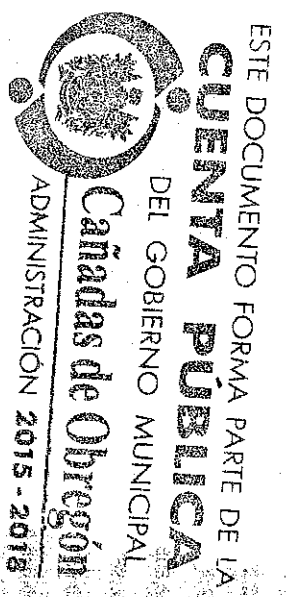 ESTE DOCUMENTO FORMA PARTE DE LA
CUENTA PÚBLICA
DEL GOBIERNO MUNICIPAL
Cañadas de Obregón
ADMINISTRACIÓN 2015 - 2018